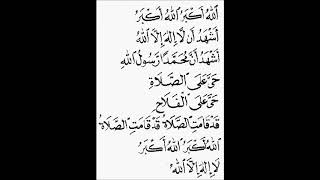 اَللهُ أَكْبَرُ اَللهُ أَكْبَرُ
أَشْهَدُ أَن لَّا إِلٰهَ إِلَّا اللهُ
أَشْهَدُ أَنَّ مُحَمَّدًا رَّسُولُ اللهِ
حَيَّ عَلَى ٱلصَّلَاةِ
حَيَّ عَلَى ٱلْفَلَاحِ
قَدْ قَامَتِ ٱلصَّلَاةُ قَدْ قَامَتِ ٱلصَّلَاةُ
اَللهُ أَكْبَرُ اَللهُ أَكْبَرُ
لَا إِلٰهَ إِلَّا اللهُ